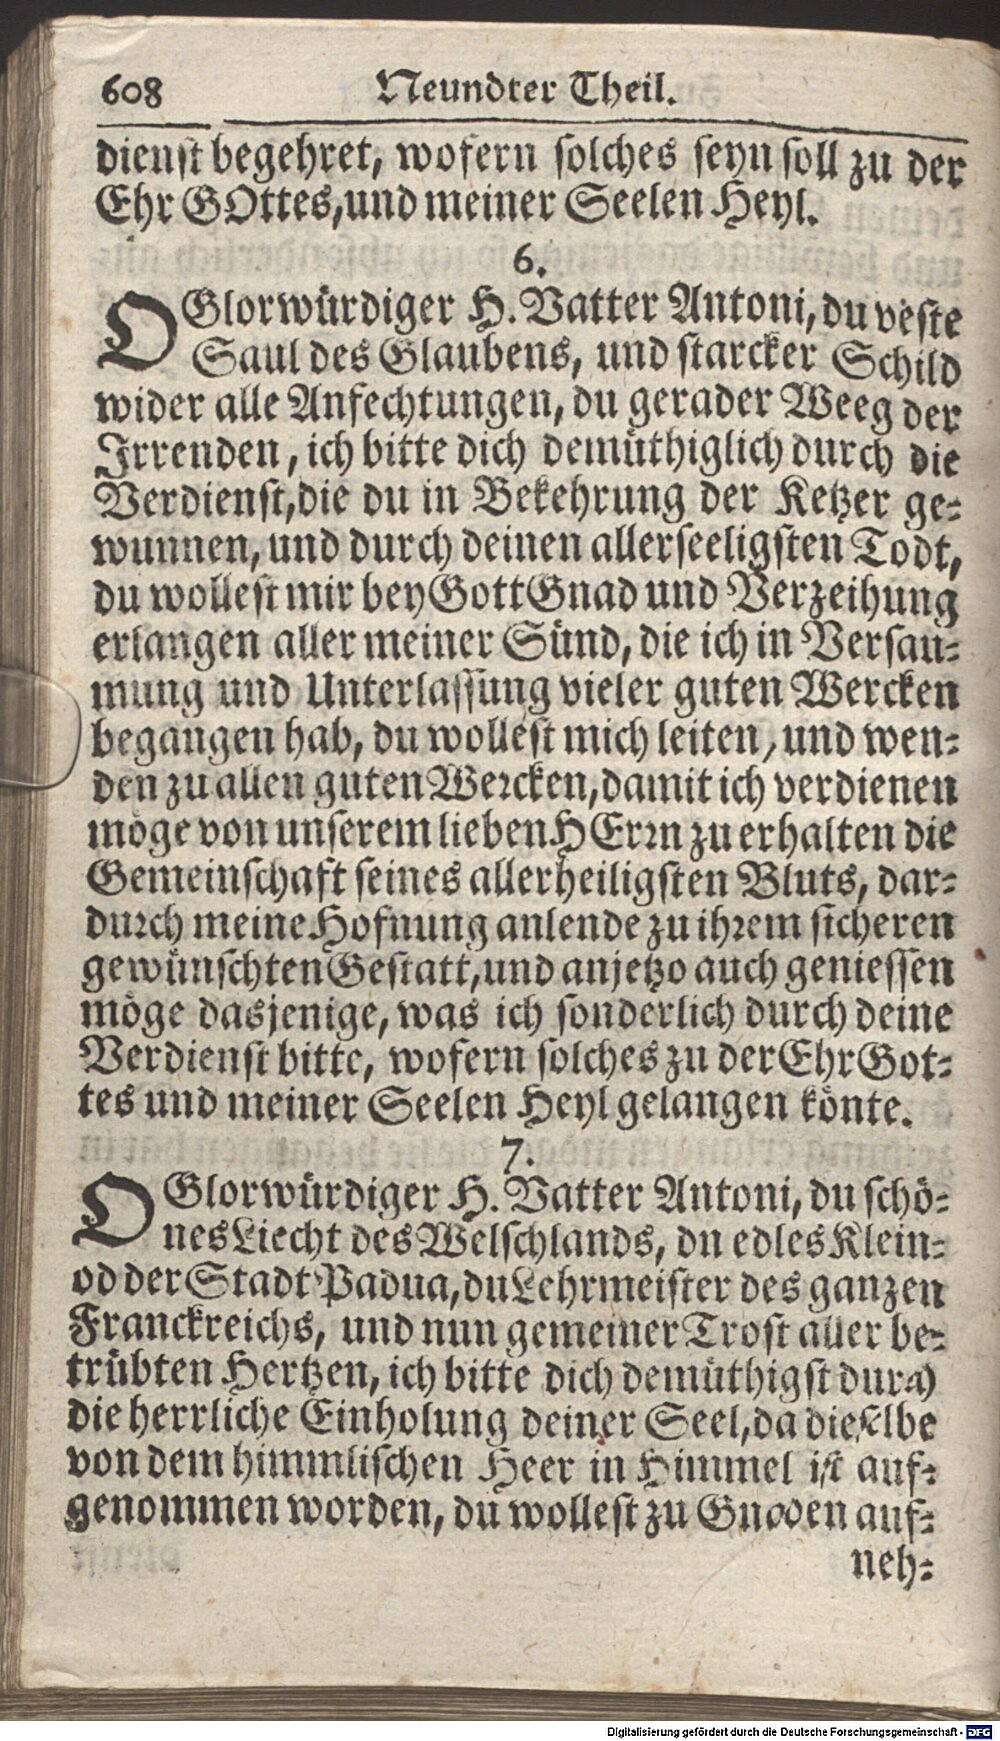 608 Neundter Theil.
dienst begehret, wofern solches seyn soll zu der
Ehr GOttes, und meiner Seelen Heyl.
6.
O Glorwürdiger H. Vatter Antoni, du veste
Saul des Glaubens, und starcker Schild
wider alle Anfechtungen, du gerader Weeg der
Irrenden, ich bitte dich demüthiglich durch die
Verdienst, die du in Bekehrung der Ketzer ge-
wunnen, und durch deinen allerseeligsten Todt,
du wollest mir bey Gott Gnad und Verzeihung
erlangen aller meiner Sünd, die ich in Versau-
mung und Unterlassung vieler guten Wercken
begangen hab, du wollest mich leiten, und wen-
den zu allen guten Wercken, damit ich verdienen
möge von unserem lieben HErrn zu erhalten die
Gemeinschaft seines allerheiligsten Bluts, dar-
durch meine Hofnung anlende zu ihrem sicheren
gewünschten Gestatt, und anjetzo auch geniessen
möge dasjenige, was ich sonderlich durch deine
Verdienst bitte, wofern solches zu der Ehr Got-
tes und meiner Seelen Heyl gelangen könte.
7.
O Glorwürdiger H. Vatter Antoni, du schö-
nes Liecht des Welschlands, du edles Klein-
od der Stadt Padua, du Lehrmeister des ganzen
Franckreichs, und nun gemeiner Trost aller be-
trübten Hertzen, ich bitte dich demüthigst durch
die herrliche Einholung deiner Seel, da dieselbe
von dem himmlischen Heer in Himmel ist auf-
genommen worden, du wollest zu Gnaden auf-
neh-
Digitalisierung gefördert durch die Deutsche Forschungsgemeinschaft - DFG